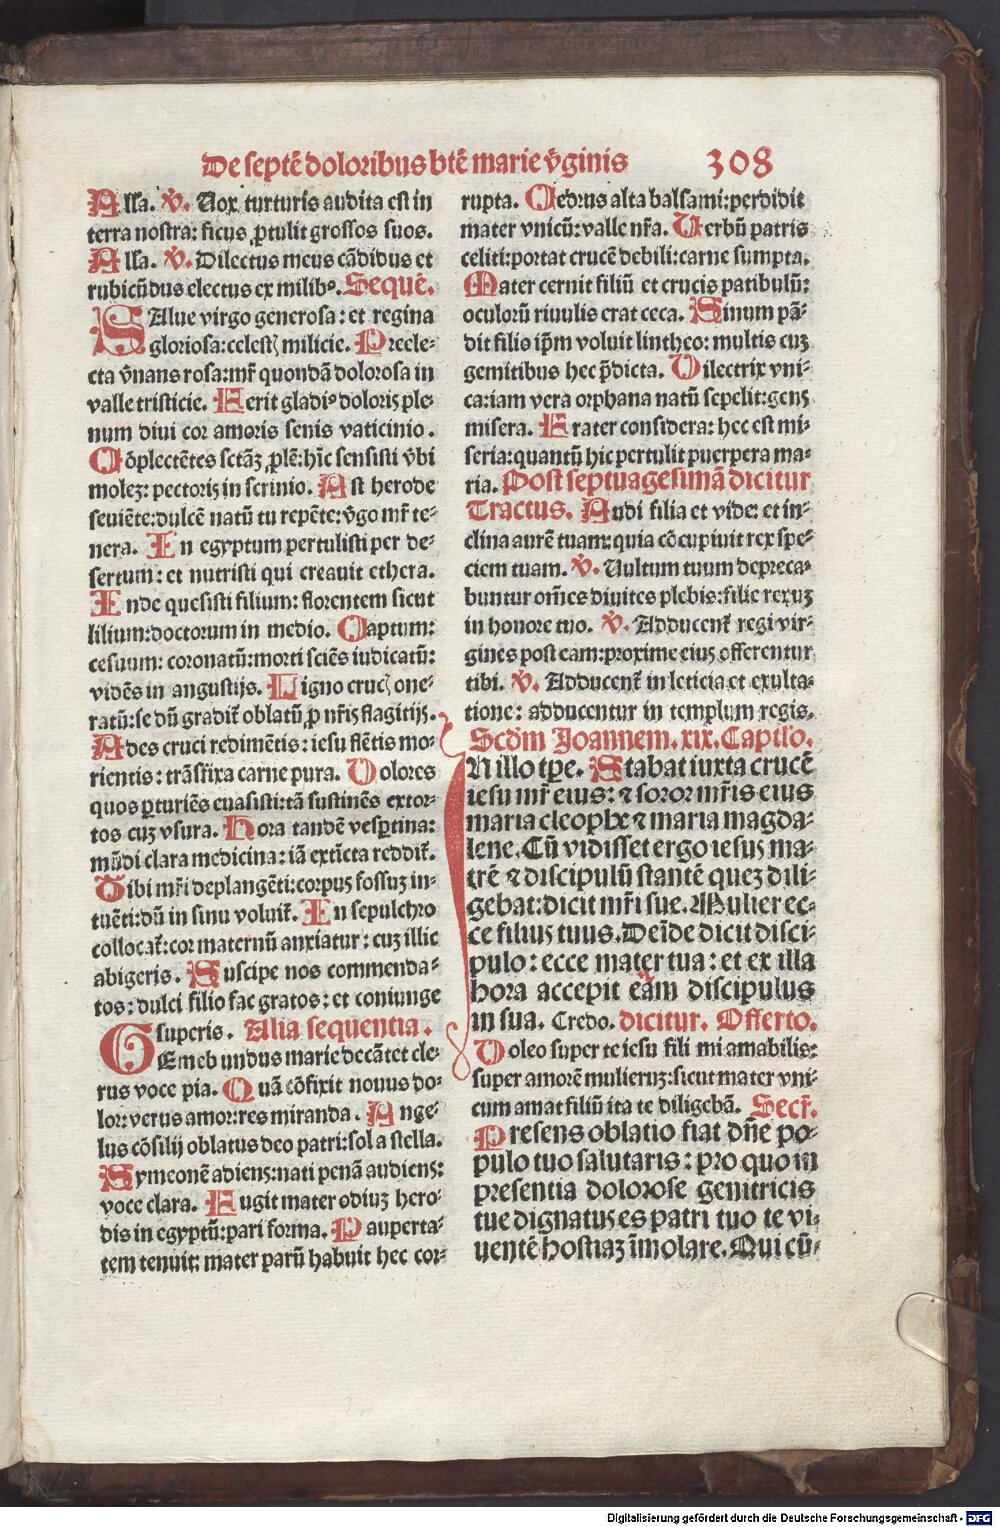 De septē doloribus btē marie v̄ginis 308
Alla. v̄. Uox turturis audita est in
terra nostra: ficus ꝓtulit grossos suos.
Alla. v̄. Dilectus meus cādidus et
rubicūdus electus ex milibꝰ. Sequē.
SAlue virgo generosa: et regina
gloriosa: celestꝭ milicie. Precle⸗
cta v̄nans rosa: mr̄ quondā dolorosa in
valle tristicie. Ferit gladiꝰ doloris ple⸗
num diui cor amoris senis vaticinio.
Cōplectētes sctāꝫ ꝓlē: hīc sensisti v̄bi
molez: pectoris in scrinio. Ast herode
seuiēte: dulcē natū tu repēte: v̄go mr̄ te⸗
nera. In egyptum pertulisti per de⸗
sertum: et nutristi qui creauit ethera.
Inde quesisti filium: florentem sicut
lilium: doctorum in medio. Captum:
cesuum: coronatū: morti sciēs iudicatū:
vidēs in angustijs. Ligno crucꝭ one⸗
ratū: se dū gradit̄ oblatū ꝓ nr̄is flagitijs.
Ades cruci redimētis: iesu flētis mo⸗
rientis: trāsfixa carne pura. Dolores
quos ꝑturiēs euasisti: tā sustinēs extor⸗
tos cuz vsura. Hora tandē vesꝑtina:
mūdi clara medicina: iā extīcta reddit̄.
Tibi mr̄i deplangēti: corpus fossuz in⸗
tuēti: dū in sinu voluit̄. In sepulchro
collocat̄: cor maternū anxiatur: cuz illic
abigeris. Suscipe nos commenda⸗
tos: dulci filio fac gratos: et coniunge
superis. Alia sequentia.
GEmebundus marie decātet cle⸗
rus voce pia. Quā cōfixit nouus do⸗
lor: verus amor: res miranda. Ange⸗
lus cōsilij oblatus deo patri: sol a stella.
Symeonē adiens: nati penā audiens:
voce clara. Fugit mater odiuz hero⸗
dis in egyptū: pari forma. Pauperta⸗
tem tenuit: mater parū habuit hec cor⸗
rupta. Cedrus alta balsami: perdidit
mater vnicū: valle nr̄a. Uerbū patris
celiti: portat crucē debili: carne sumpta.
Mater cernit filiū et crucis patibulū:
oculorū riuulis erat ceca. Sinum pā⸗
dit filio ip̄m voluit lintheo: multis cuz
gemitibus hec p̄dicta. Dilectrix vni⸗
ca: iam vera orphana natū sepelit: gens
misera. Frater considera: hec est mi⸗
seria: quantū hic pertulit puerpera ma⸗
ria. Post septuagesimā dicitur
Tractus. Audi filia et vide: et in⸗
clina aurē tuam: quia cōcupiuit rex spe⸗
ciem tuam. v̄. Uultum tuum depreca⸗
buntur om̄es diuites plebis: filie rexuz
in honore tuo. v̄. Adducent̄ regi vir⸗
gines post eam: proxime eius offerentur
tibi. v̄. Adducent̄ in leticia et exulta⸗
tione: adducentur in templum regis.
Scdm Joannem. xix. Captlo.
IN illo tpe. Stabat iuxta crucē
iesu mr̄ eius: ⁊ soror mr̄is eius
maria cleophe ⁊ maria magda⸗
lene. Cū vidisset ergo iesus ma⸗
trē ⁊ discipulū stantē quez dili⸗
gebat: dicit mr̄i sue. Mulier ec⸗
ce filius tuus. Deīde dicit disci⸗
pulo: ecce mater tua: et ex illa
hora accepit eam discipulus
in sua. Credo. dicitur. Offerto.
Doleo super te iesu fili mi amabilis:
super amorē mulieruz: sicut mater vni⸗
cum amat filiū ita te diligebā. Secr̄.
Presens oblatio fiat dn̄e po⸗
pulo tuo salutaris: pro quo in
presentia dolorose genitricis
tue dignatus es patri tuo te vi⸗
uentē hostiaz īmolare. Qui cū⸗
Digitalisierung gefördert durch die Deutsche Forschungsgemeinschaft - DFG